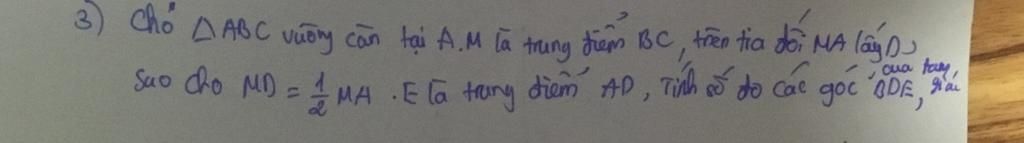 3) Cho △ABC vuông cân tại A. M là trung điểm BC, trên tia đối MA lấy D
sao cho MD = 1/2 MA. E là trung điểm AD, Tính số đo các góc của tam giác BDE,